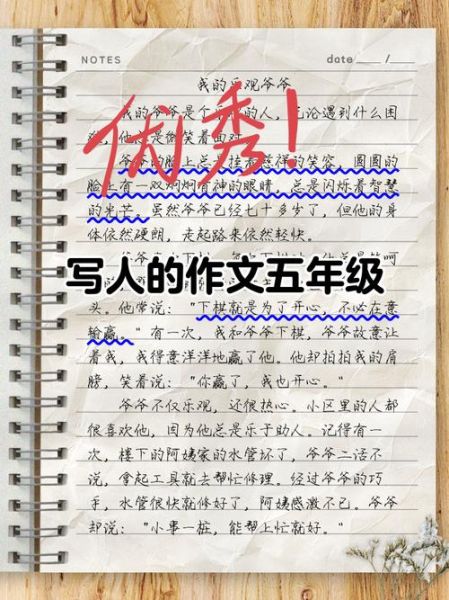 NOTES
date ____ /__
我的乐观爷爷
优秀!
我的爷爷是个的人,无论遇到什么困
他是微笑着面对
爷爷的脸上总是挂着慈祥的笑容,圆圆的
脸上有一双炯炯有神的眼睛,总是闪烁着智慧
的光芒。虽然爷爷已经七十多岁了,但他的身
体依然硬朗,走起路来依然轻快。
写人的作文五年级
头。他常说:"下棋就是为了开心,不必在意
输赢。"有一次,我和爷爷下棋,爷爷故意让
着我,我得意洋洋地赢了他。他却拍拍我的肩
膀,笑着说:"你赢了,我也开心。"
爷爷不仅乐观,还很热心。小区里的人都
很喜欢他,因为他总是乐于助人。记得有一
次,楼下的阿姨家的水管坏了,爷爷二话不
说,拿起工具就去帮忙修理。经过爷爷的巧
手,水管很快就修好了,阿姨感激不已。爷爷
却说:"小事一桩,能帮上忙就好。"